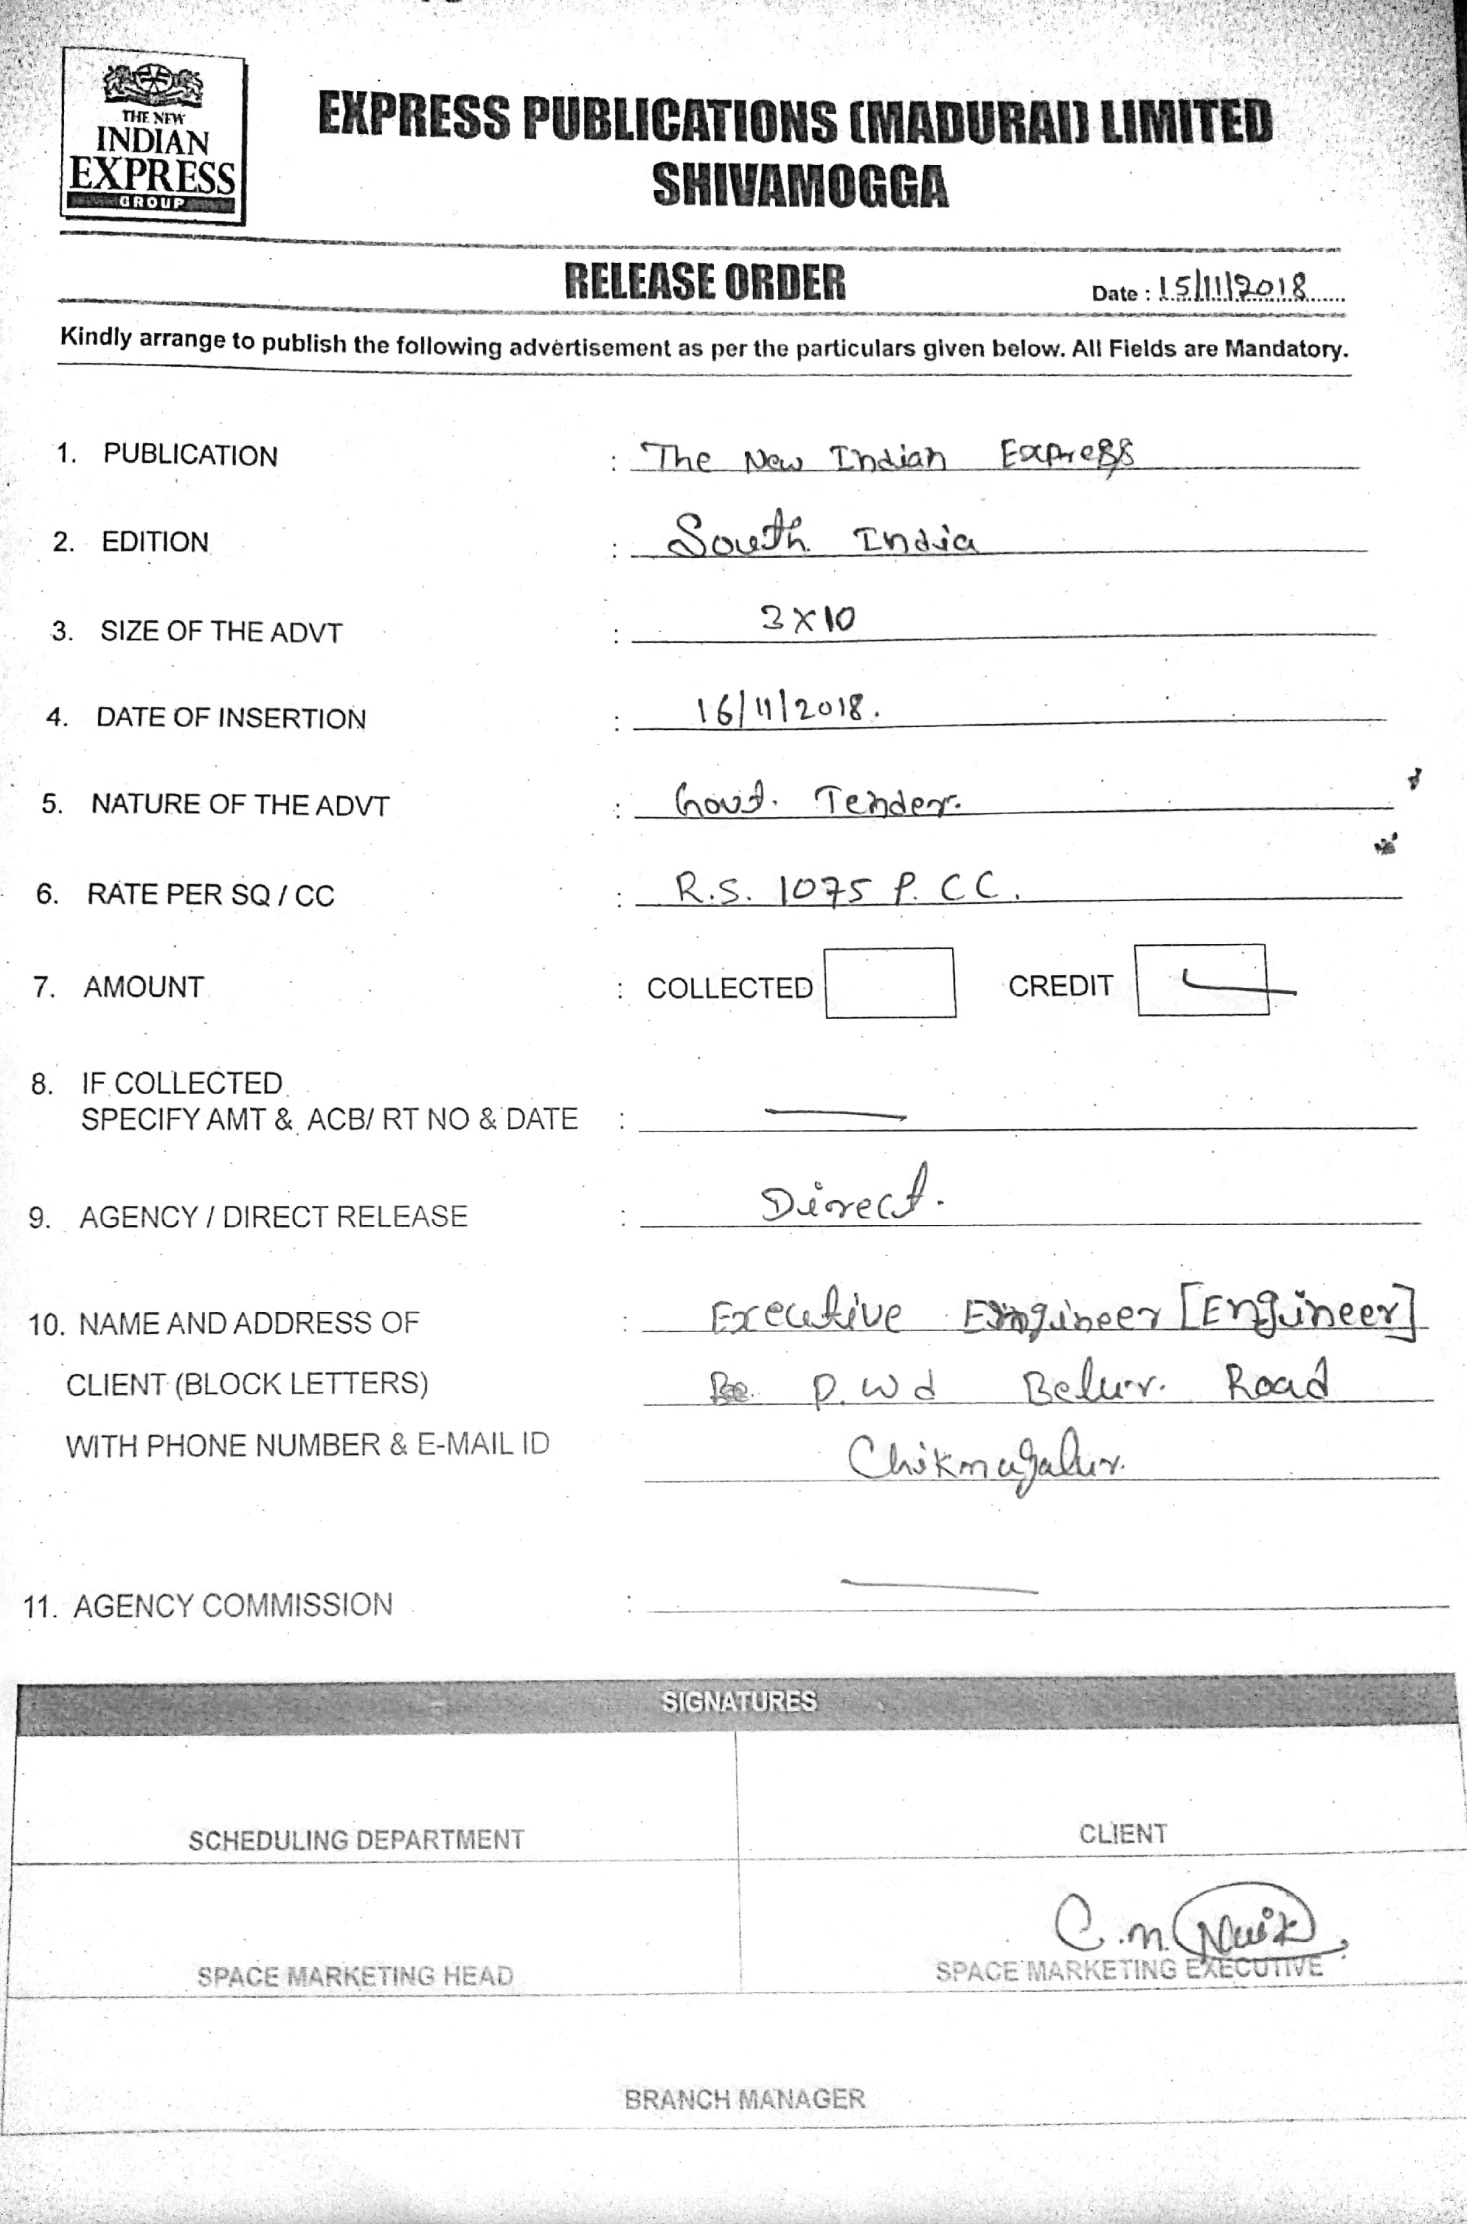 THE NEW
INDIAN
EXPRESS
GROUP
EXPRESS PUBLICATIONS (MADURAI) LIMITED
SHIVAMOGGA
RELEASE ORDER
Date : 15/11/2018
Kindly arrange to publish the following advertisement as per the particulars given below. All Fields are Mandatory.
1. PUBLICATION : The New Indian Express
2. EDITION : South India
3. SIZE OF THE ADVT : 3x10
4. DATE OF INSERTION : 16/11/2018.
5. NATURE OF THE ADVT : Govt. Tender.
6. RATE PER SQ / CC : R.S. 1075 P. CC.
7. AMOUNT : COLLECTED CREDIT
8. IF COLLECTED
SPECIFY AMT & ACB/ RT NO & DATE : —
9. AGENCY / DIRECT RELEASE : Direct.
10. NAME AND ADDRESS OF : Executive Engineer [Engineer]
CLIENT (BLOCK LETTERS) P.W d Belur. Road
WITH PHONE NUMBER & E-MAIL ID Chikmagalur.
11. AGENCY COMMISSION : —
SIGNATURES
SCHEDULING DEPARTMENT CLIENT
C.M. Naik
SPACE MARKETING HEAD SPACE MARKETING EXECUTIVE
BRANCH MANAGER